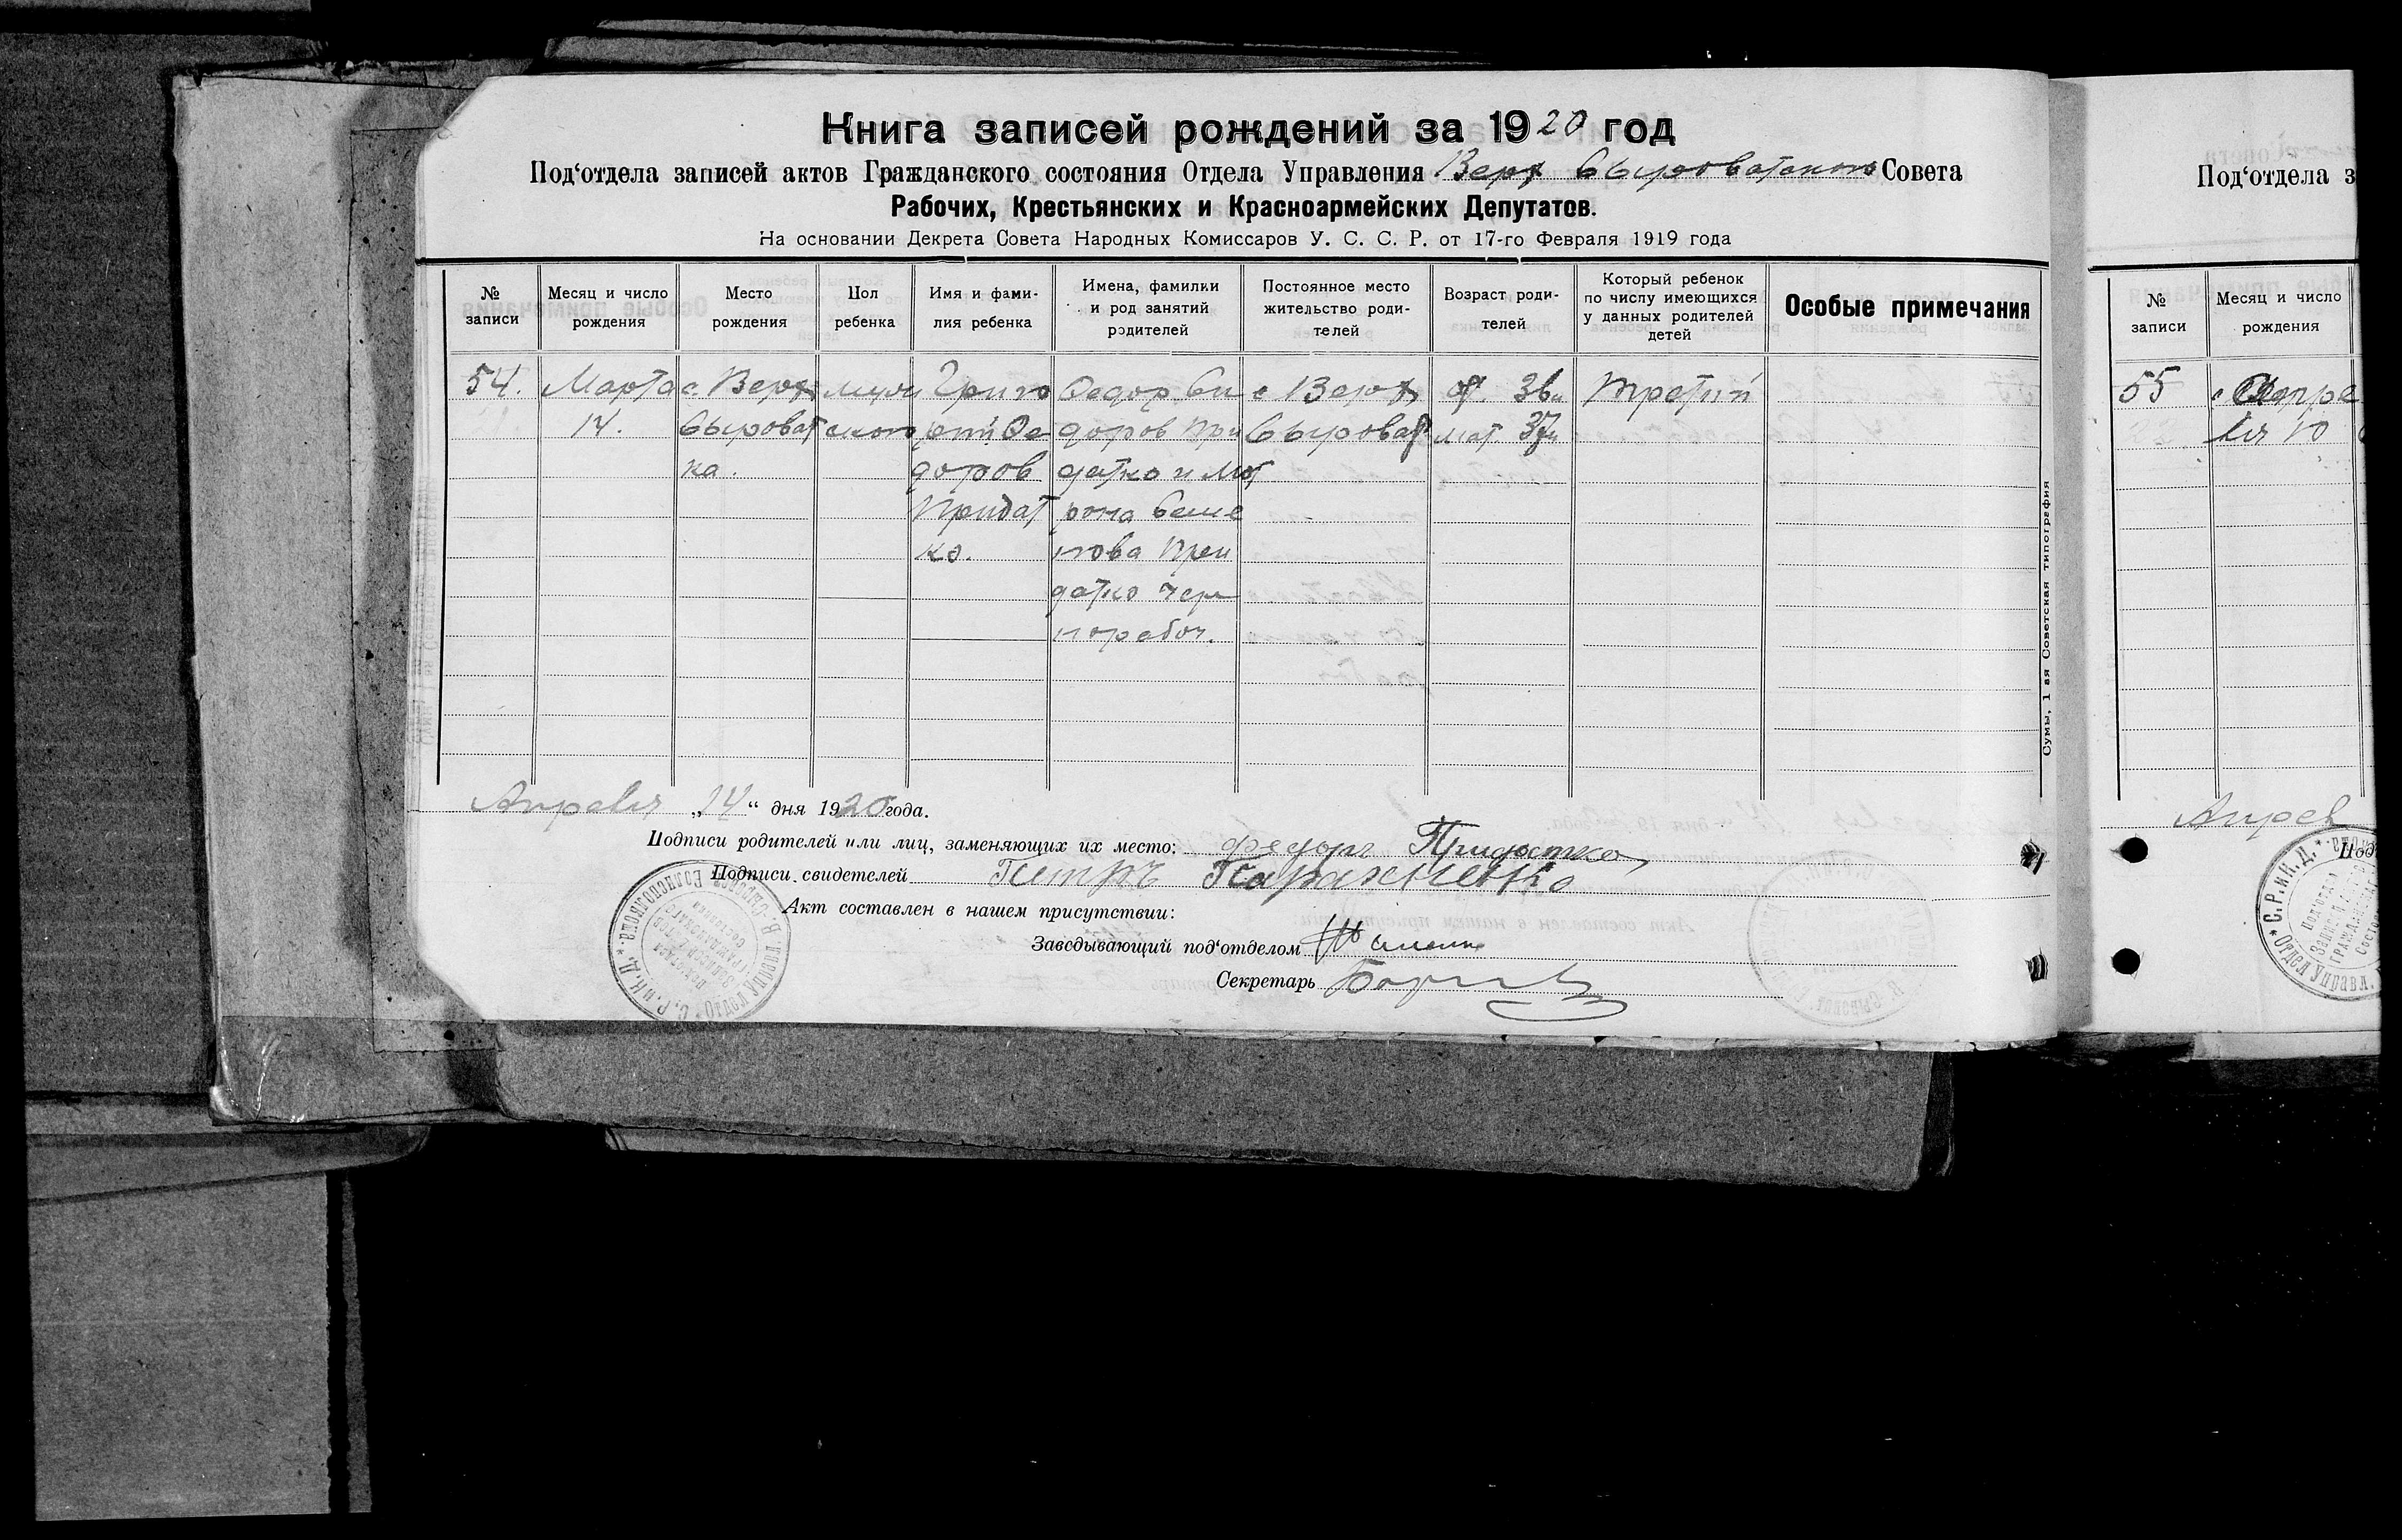 Книга записей рождений за 1920 год
Под‘отдела записей актов Гражданского состояния Отдела Управления Верх Сыроватского Совета
Рабочих, Крестьянских и Красноармейских Депутатов.
На основании Декрета Совета Народных Комиссаров У. С. С. Р. от 17-го Февраля 1919 года
№ записи
Месяц и число рождения
Место рождения
Пол ребенка
Имя и фами-
лия ребенка
Имена, фамилки
и род занятий
родителей
Постоянное место
жительство роди-
телей
Возраст роди-
телей
Который ребенок
по числу имеющихся
у данных родителей
детей
Особые примечания
54.
Марта
14.
с. Верх
Сыроват
ка.
муж
ского
Григо
рий Фе
доров
Придат
ко.
Федор Си
доров При
датко и Мат
рона Семе
нова При
датко Чер
норабоч.
с Верх
Сыроват
от. 36л
мат. 37л
третий
Апреля „14“ дня 1920 года.
Подписи родителей или лиц, заменяющих их место: Федоръ Придатко
Подписи свидетелей Петръ Пархоменко
Акт составлен в нашем присутствии:
Заведывающий под‘отделом
Секретарь
Сумы, 1-ая Советская типография
Под‘отдела з
№ записи
Месяц и число рождения
55
Апре
ля 10
Апрел
Под
* С.Р.и К.Д. *
Отдел Управл.